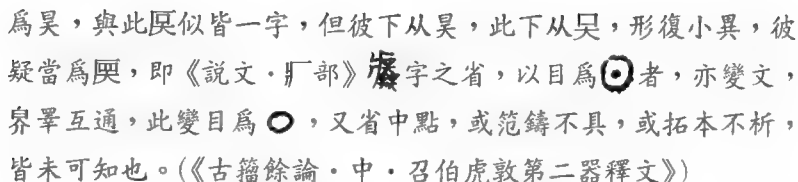 爲昊,與此似皆一字,但彼下从昊,此下从,形復小異,彼
疑當爲,即《説文·疒部》字之省,以目爲者,亦變文,
睪互通,此變目爲,又省中點,或范鑄不具,或拓本不析,
皆未可知也。(《古籀餘論·中·召伯虎敦第二器釋文》)